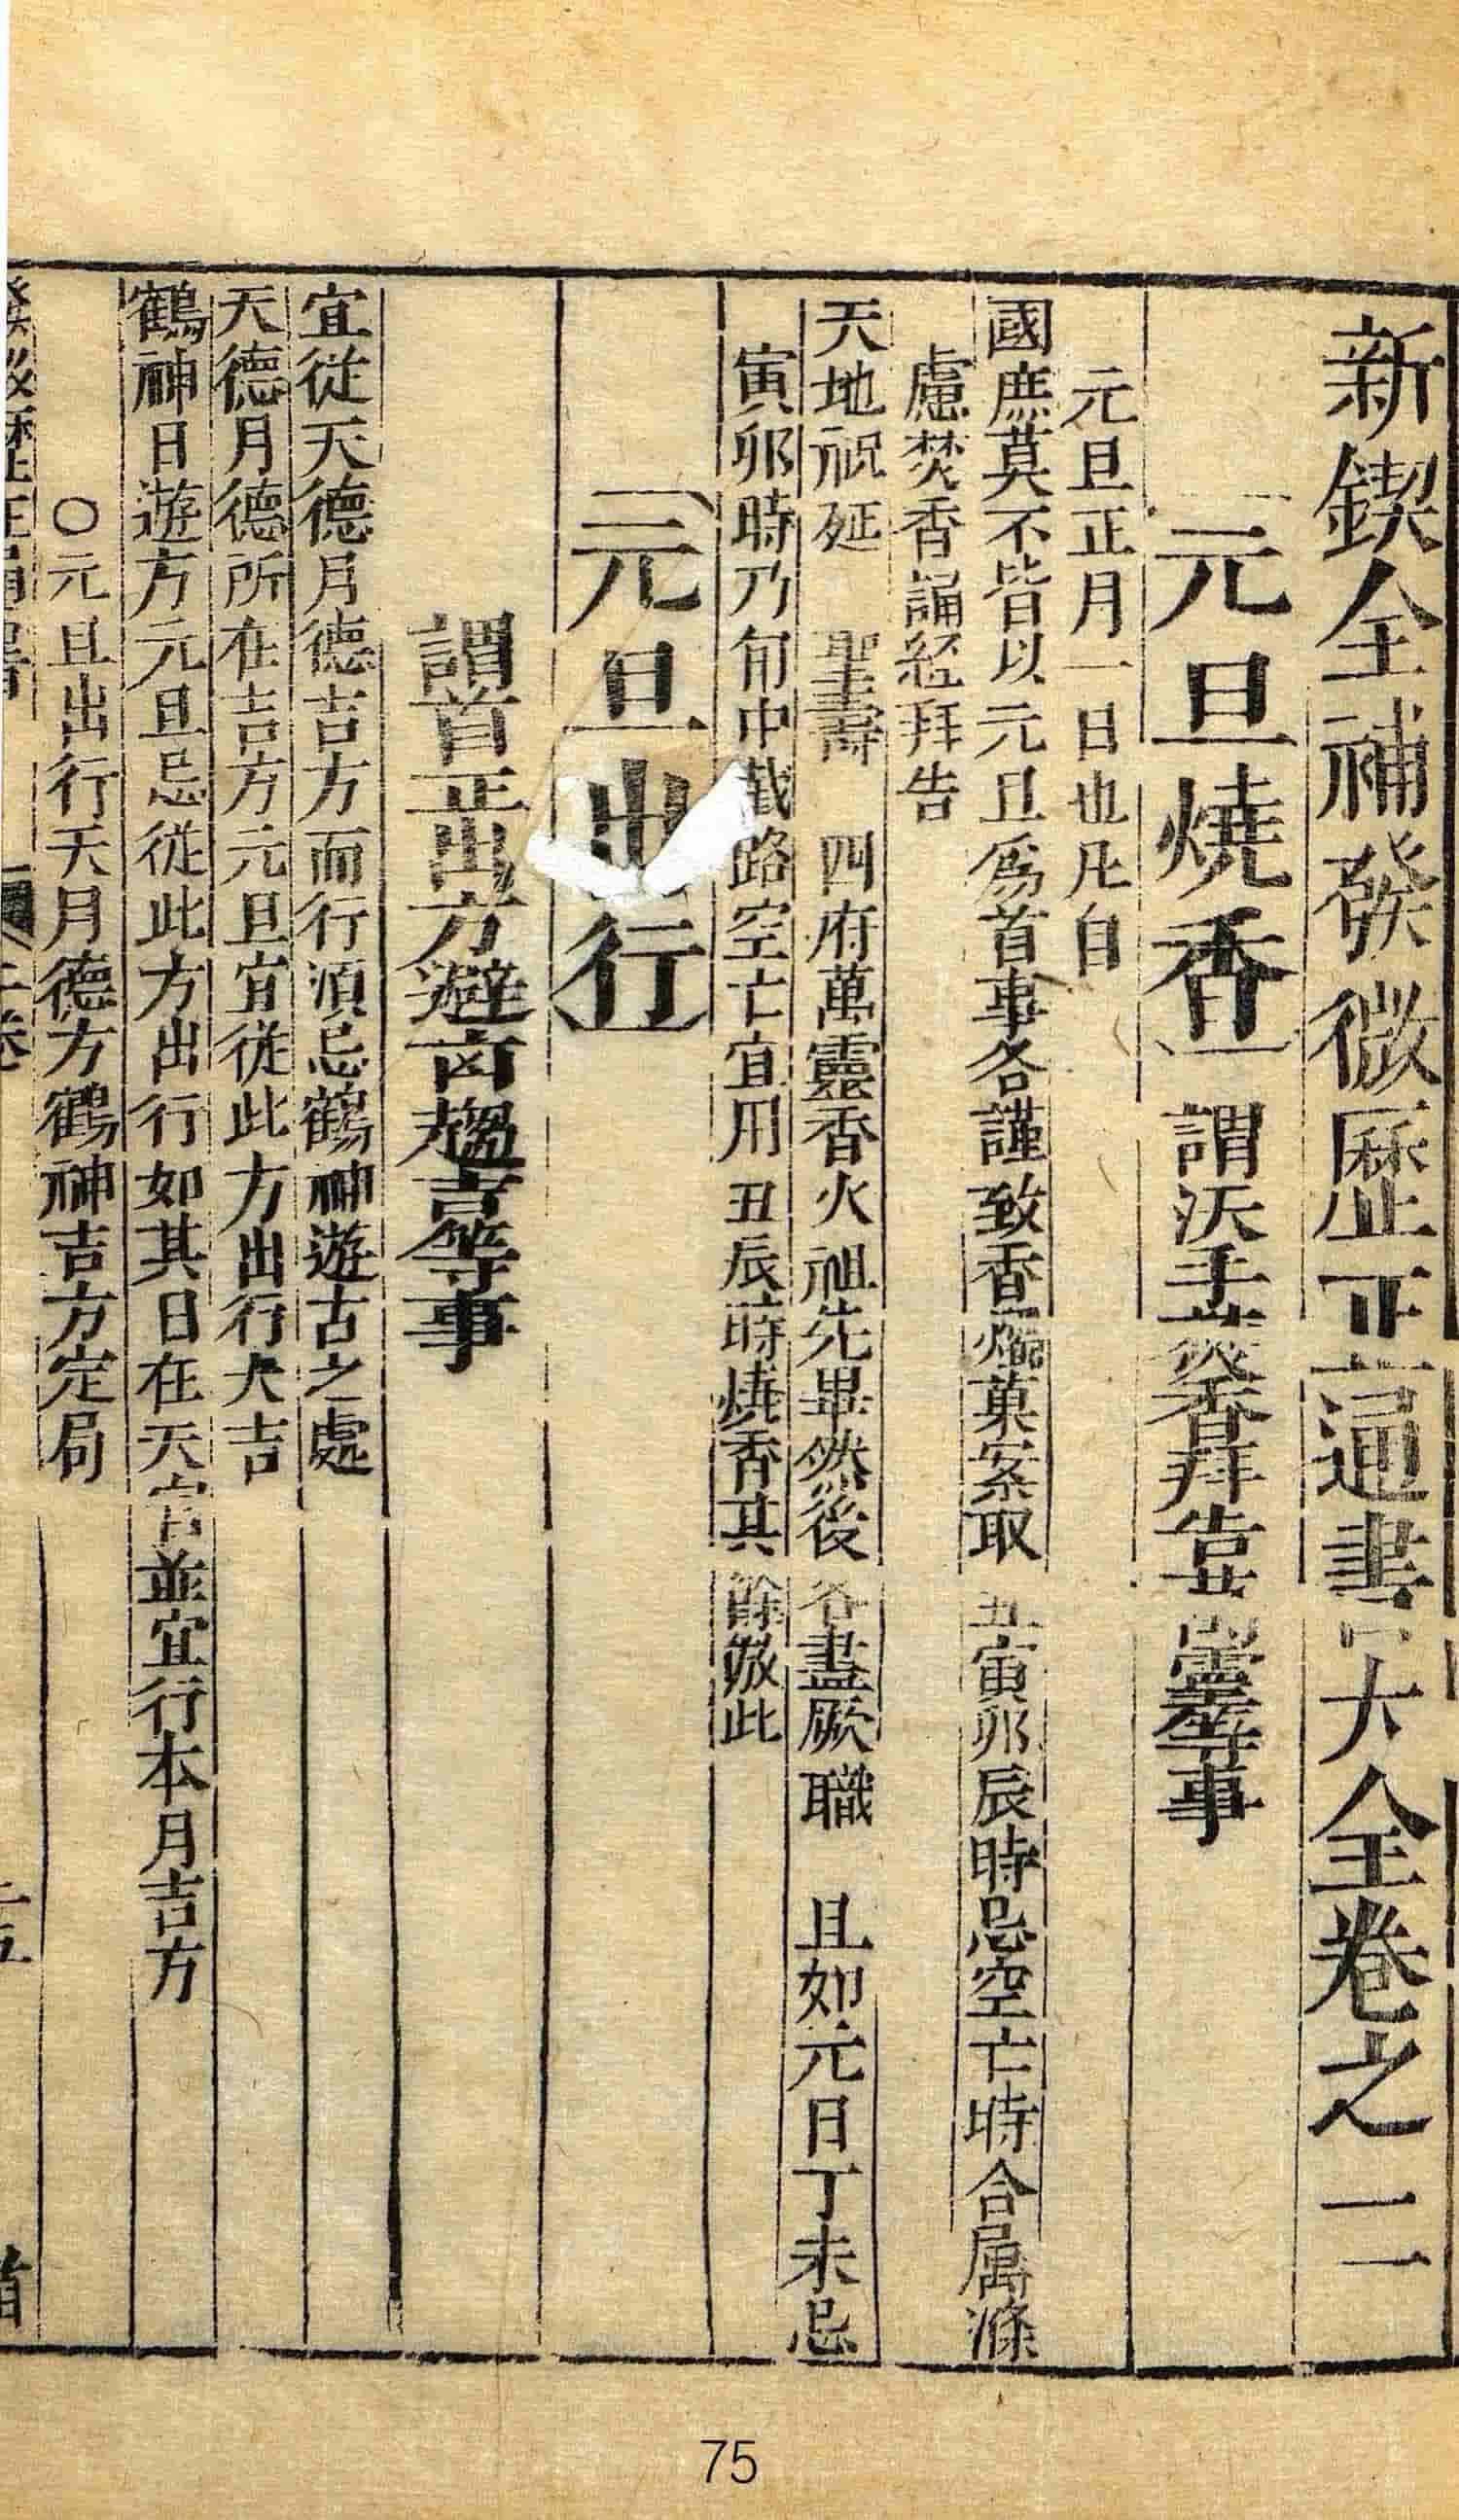 新鍥全補發微歷正通書大全卷之二
元旦燒香 謂沃手焚香拜告靈等事
元旦正月一日也凡自
國庶莫不皆以元旦爲首事各謹致香燭菓案取丑寅卯辰時忌空亡時合属滌
慮焚香誦經拜告
天地祝延 聖壽 四府萬靈香火祖先畢然後各盡厥職 且如元日丁未忌
寅卯時乃旬中截路空亡宜用丑辰時燒香其餘倣此
元旦出行
謂首正出方避凶趨吉等事
宜從天德月德吉方而行須忌鶴神遊占之處
天德月德所在吉方元旦宜從此方出行大吉
鶴神日遊方元旦忌從此方出行如其日在天宮並宜行本月吉方
〇元旦出行天月德方鶴神吉方定局
75